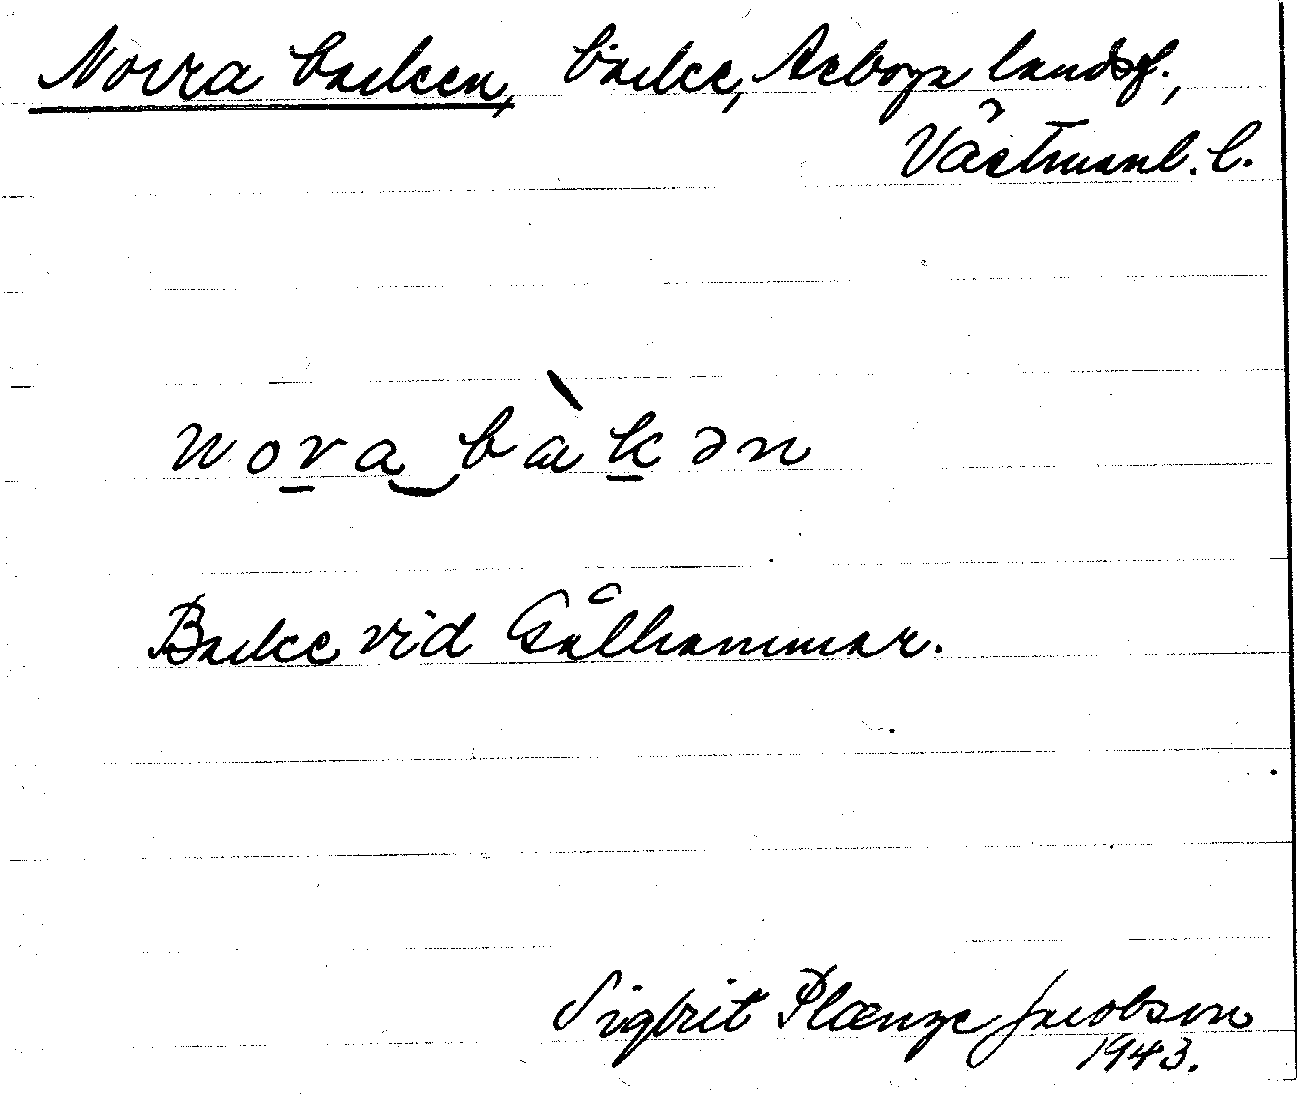 Norra backen, backe, Arboga landsf.,
Västmanl. l.
nora bàkən
Backe vid Gålhammar.
Sigfrit Plænge Jacobson
1943.